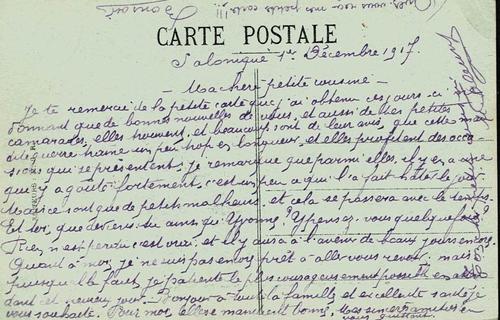 CARTE POSTALE
Salonique 1er Décembre 1917.
- Ma chère petite cousine -
Je te remercie de la petite carte que j'ai obtenu ces jours-ci
donnant que de bonnes nouvelles de vous, et aussi de tes petites
camarades, elles trouvent, et beaucoup sont de leur avis, que cette
dite guerre traine un peu trop en longueur, et elles profitent des occa
sions qui se présentent. Je remarque que parmi elles, il y en a une
qui y a goûté fortement, c'est un peu ce qui l'a fait hâter le
Mais ce sont que de petits malheurs, et cela se passera avec le temps.
Et toi, que deviens-tu ainsi qu'Yvonne, Y pensez-vous quelquefois?
Rien n'est perdu c'est vrai, et il y aura à l'avenir de beaux jours encore.
Quant à moi, je ne suis pas encore prêt à aller vous revoir, mais
puisqu'il le faut, je patiente le plus courageusement possible en
dant cet heureux jour. Bonjour à toute la famille et excellente santé je
vous souhaite. Pour moi, elle se maintient bonne. Mes sincères amitiés en
vous quittant